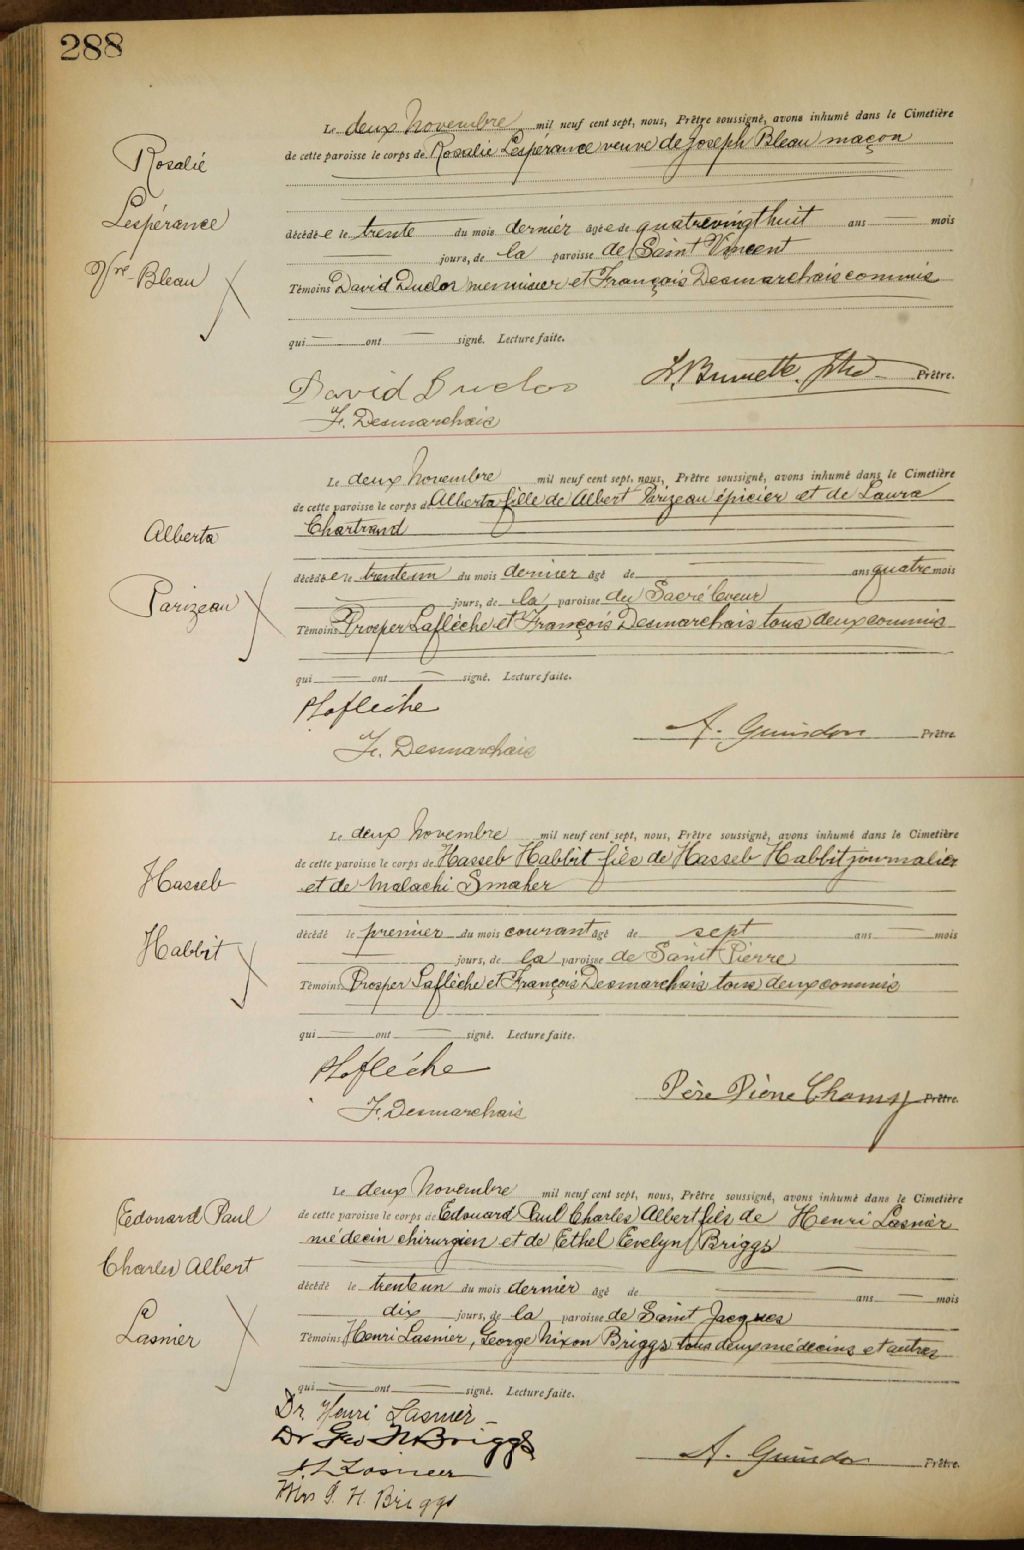 288
Rosalie
Lespérance
Vve Bleau
Le deux Novembre mil neuf cent sept, nous, Prêtre soussigné, avons inhumé dans le Cimetière
de cette paroisse le corps de Rosalie Lespérance veuve de Joseph Bleau maçon
décédée le trente du mois dernier âgée de quatrevingthuit ans — mois
jours, de la paroisse de Saint Vincent
Témoins David Duclos menuisier et François Desmarchais commis
qui — ont — signé. Lecture faite.
David Duclos
F. Desmarchais
Prêtre.
Alberta
Parizeau
Le deux Novembre mil neuf cent sept, nous, Prêtre soussigné, avons inhumé dans le Cimetière
de cette paroisse le corps de Alberta fille de Albert Parizeau épicier et de Laura
Chartrand
décédée le trenteun du mois dernier âgé de — ans quatre mois
jours, de la paroisse du Sacré Coeur
Témoins Prosper Laflèche et François Desmarchais tous deux commis
qui — ont — signé. Lecture faite.
P Laflèche
F. Desmarchais
A. Guindon Prêtre.
Hasseb
Habbit
Le deux Novembre mil neuf cent sept, nous, Prêtre soussigné, avons inhumé dans le Cimetière
de cette paroisse le corps de Hasseb Habbit fils de Hasseb Habbit journalier
et de Malachi Smaher
décédé le premier du mois courant âgé de sept ans — mois
jours, de la paroisse de Saint Pierre
Témoins Prosper Laflèche et François Desmarchais tous deux commis
qui — ont — signé. Lecture faite.
P Lafléche
F. Desmarchais
Père Pierre Chamy Prêtre.
Edouard Paul
Charles Albert
Lasnier
Le deux Novembre mil neuf cent sept, nous, Prêtre soussigné, avons inhumé dans le Cimetière
de cette paroisse le corps de Edouard Paul Charles Albert fils de Henri Lasnier
médecin chirurgien et de Ethel Evelyn Briggs
décédé le trenteun du mois dernier âgé de — ans — mois
dix jours, de la paroisse de Saint Jacques
Témoins Henri Lasnier, George Nixon Briggs tous deux médecins et autres
qui — ont — signé. Lecture faite.
Dr. Henri Lasnier
Dr Geo N Briggs
Lasnier
Mrs G. N. Briggs
A. Guindon Prêtre.